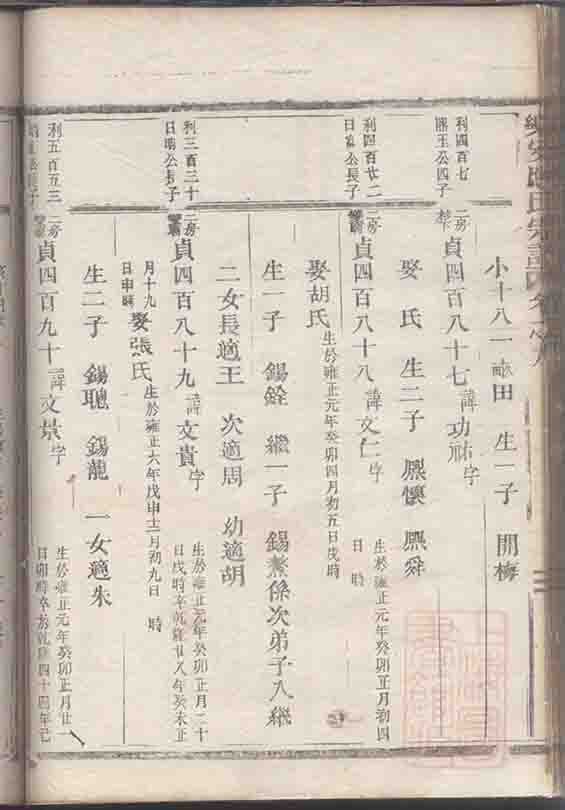 小十八一畝田 生一子 開梅
利四百七
公四子
貞四百八十七 諱功祐字
娶 氏 生二子 熙懷 熙舜
利四百廿二
公長子
二房
貞四百八十八 諱文仁字
生於雍正元年癸卯正月初四
日 時
娶胡氏 生於雍正元年癸卯四月初五日戌時
生一子 錫銓 繼一子 錫鰲係次弟子入繼
二女長適王 次適周 幼適胡
利三百三十
日 公長子
二房
貞四百八十九 諱文貴字
生於雍正元年癸卯正月二十
日戌時卒乾隆廿八年癸未正
月十九
日申時
娶張氏 生於雍正六年戊申十二月初九日 時
生二子 錫聰 錫龍 一女適朱
利五百五三
公長子
二房
貞四百九十 諱文景字
生於雍正元年癸卯正月廿一
日卯時卒於乾隆四十四年己